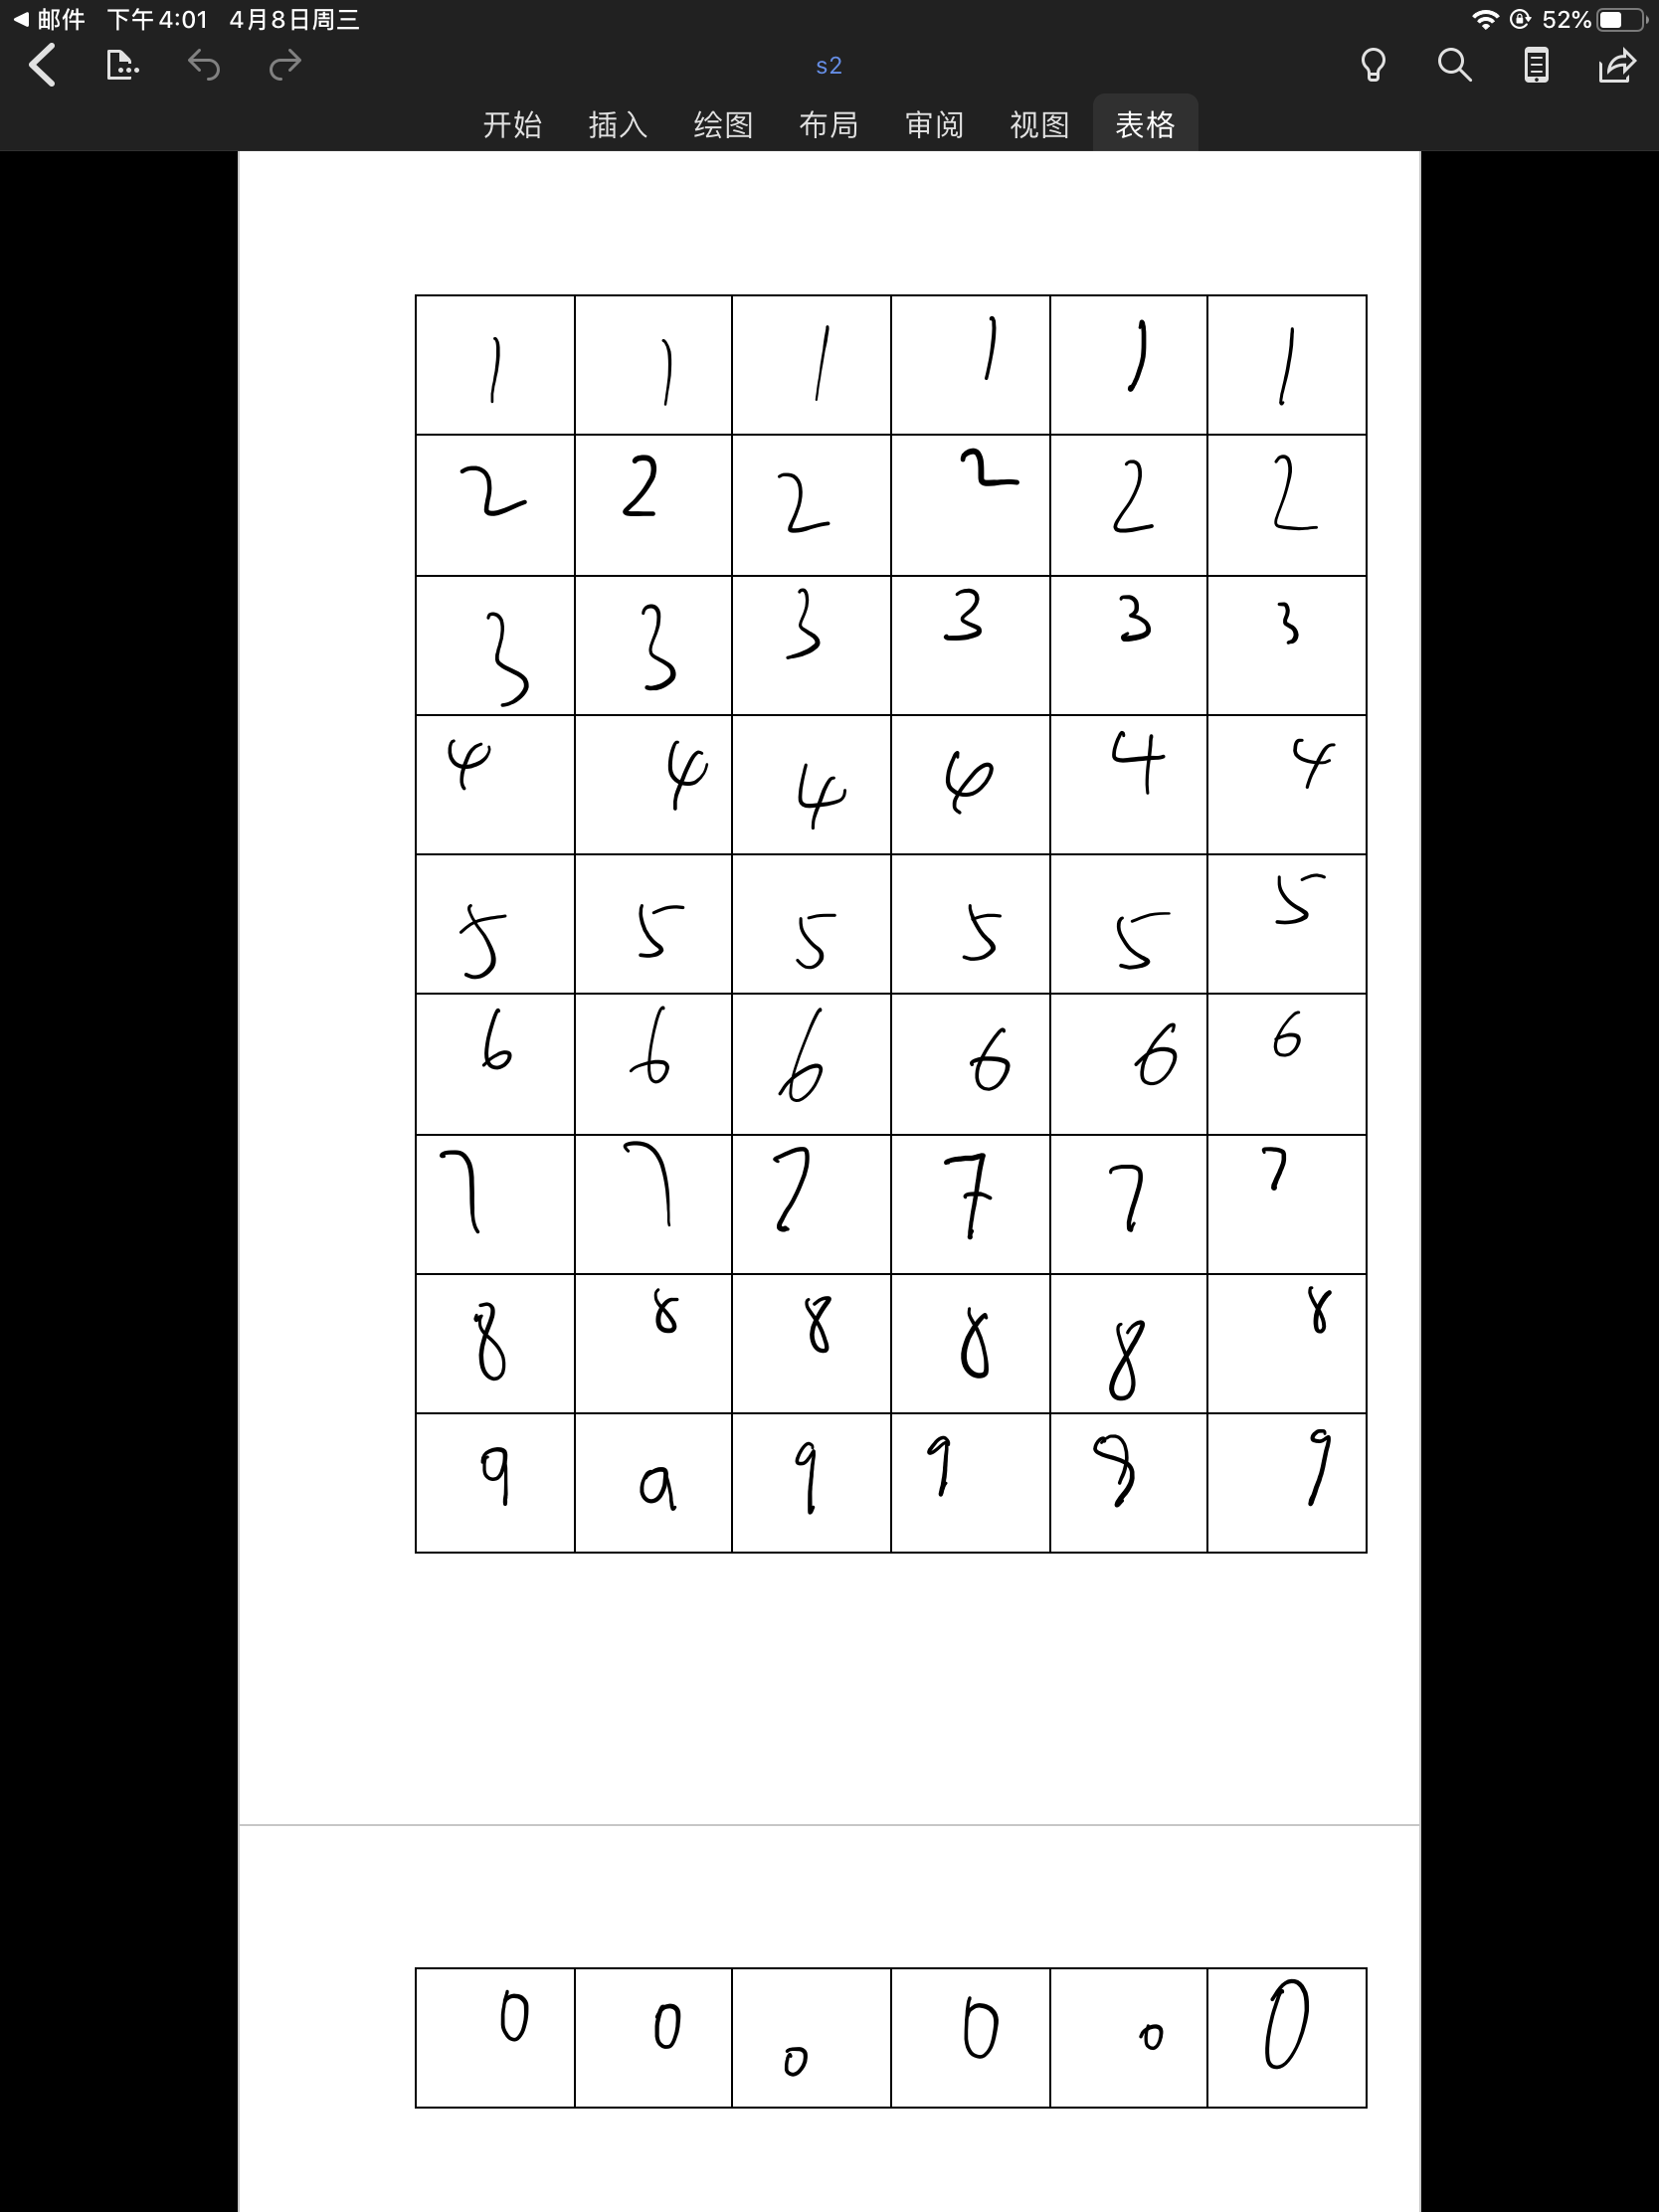 邮件 下午4:01 4月8日周三 52%
s2
开始 插入 绘图 布局 审阅 视图 表格
1 1 1 1 1 1
2 2 2 2 2 2
3 3 3 3 3 3
4 4 4 4 4 4
5 5 5 5 5 5
6 6 6 6 6 6
7 7 7 7 7 7
8 8 8 8 8 8
9 9 9 9 9 9
0 0 0 0 0 0